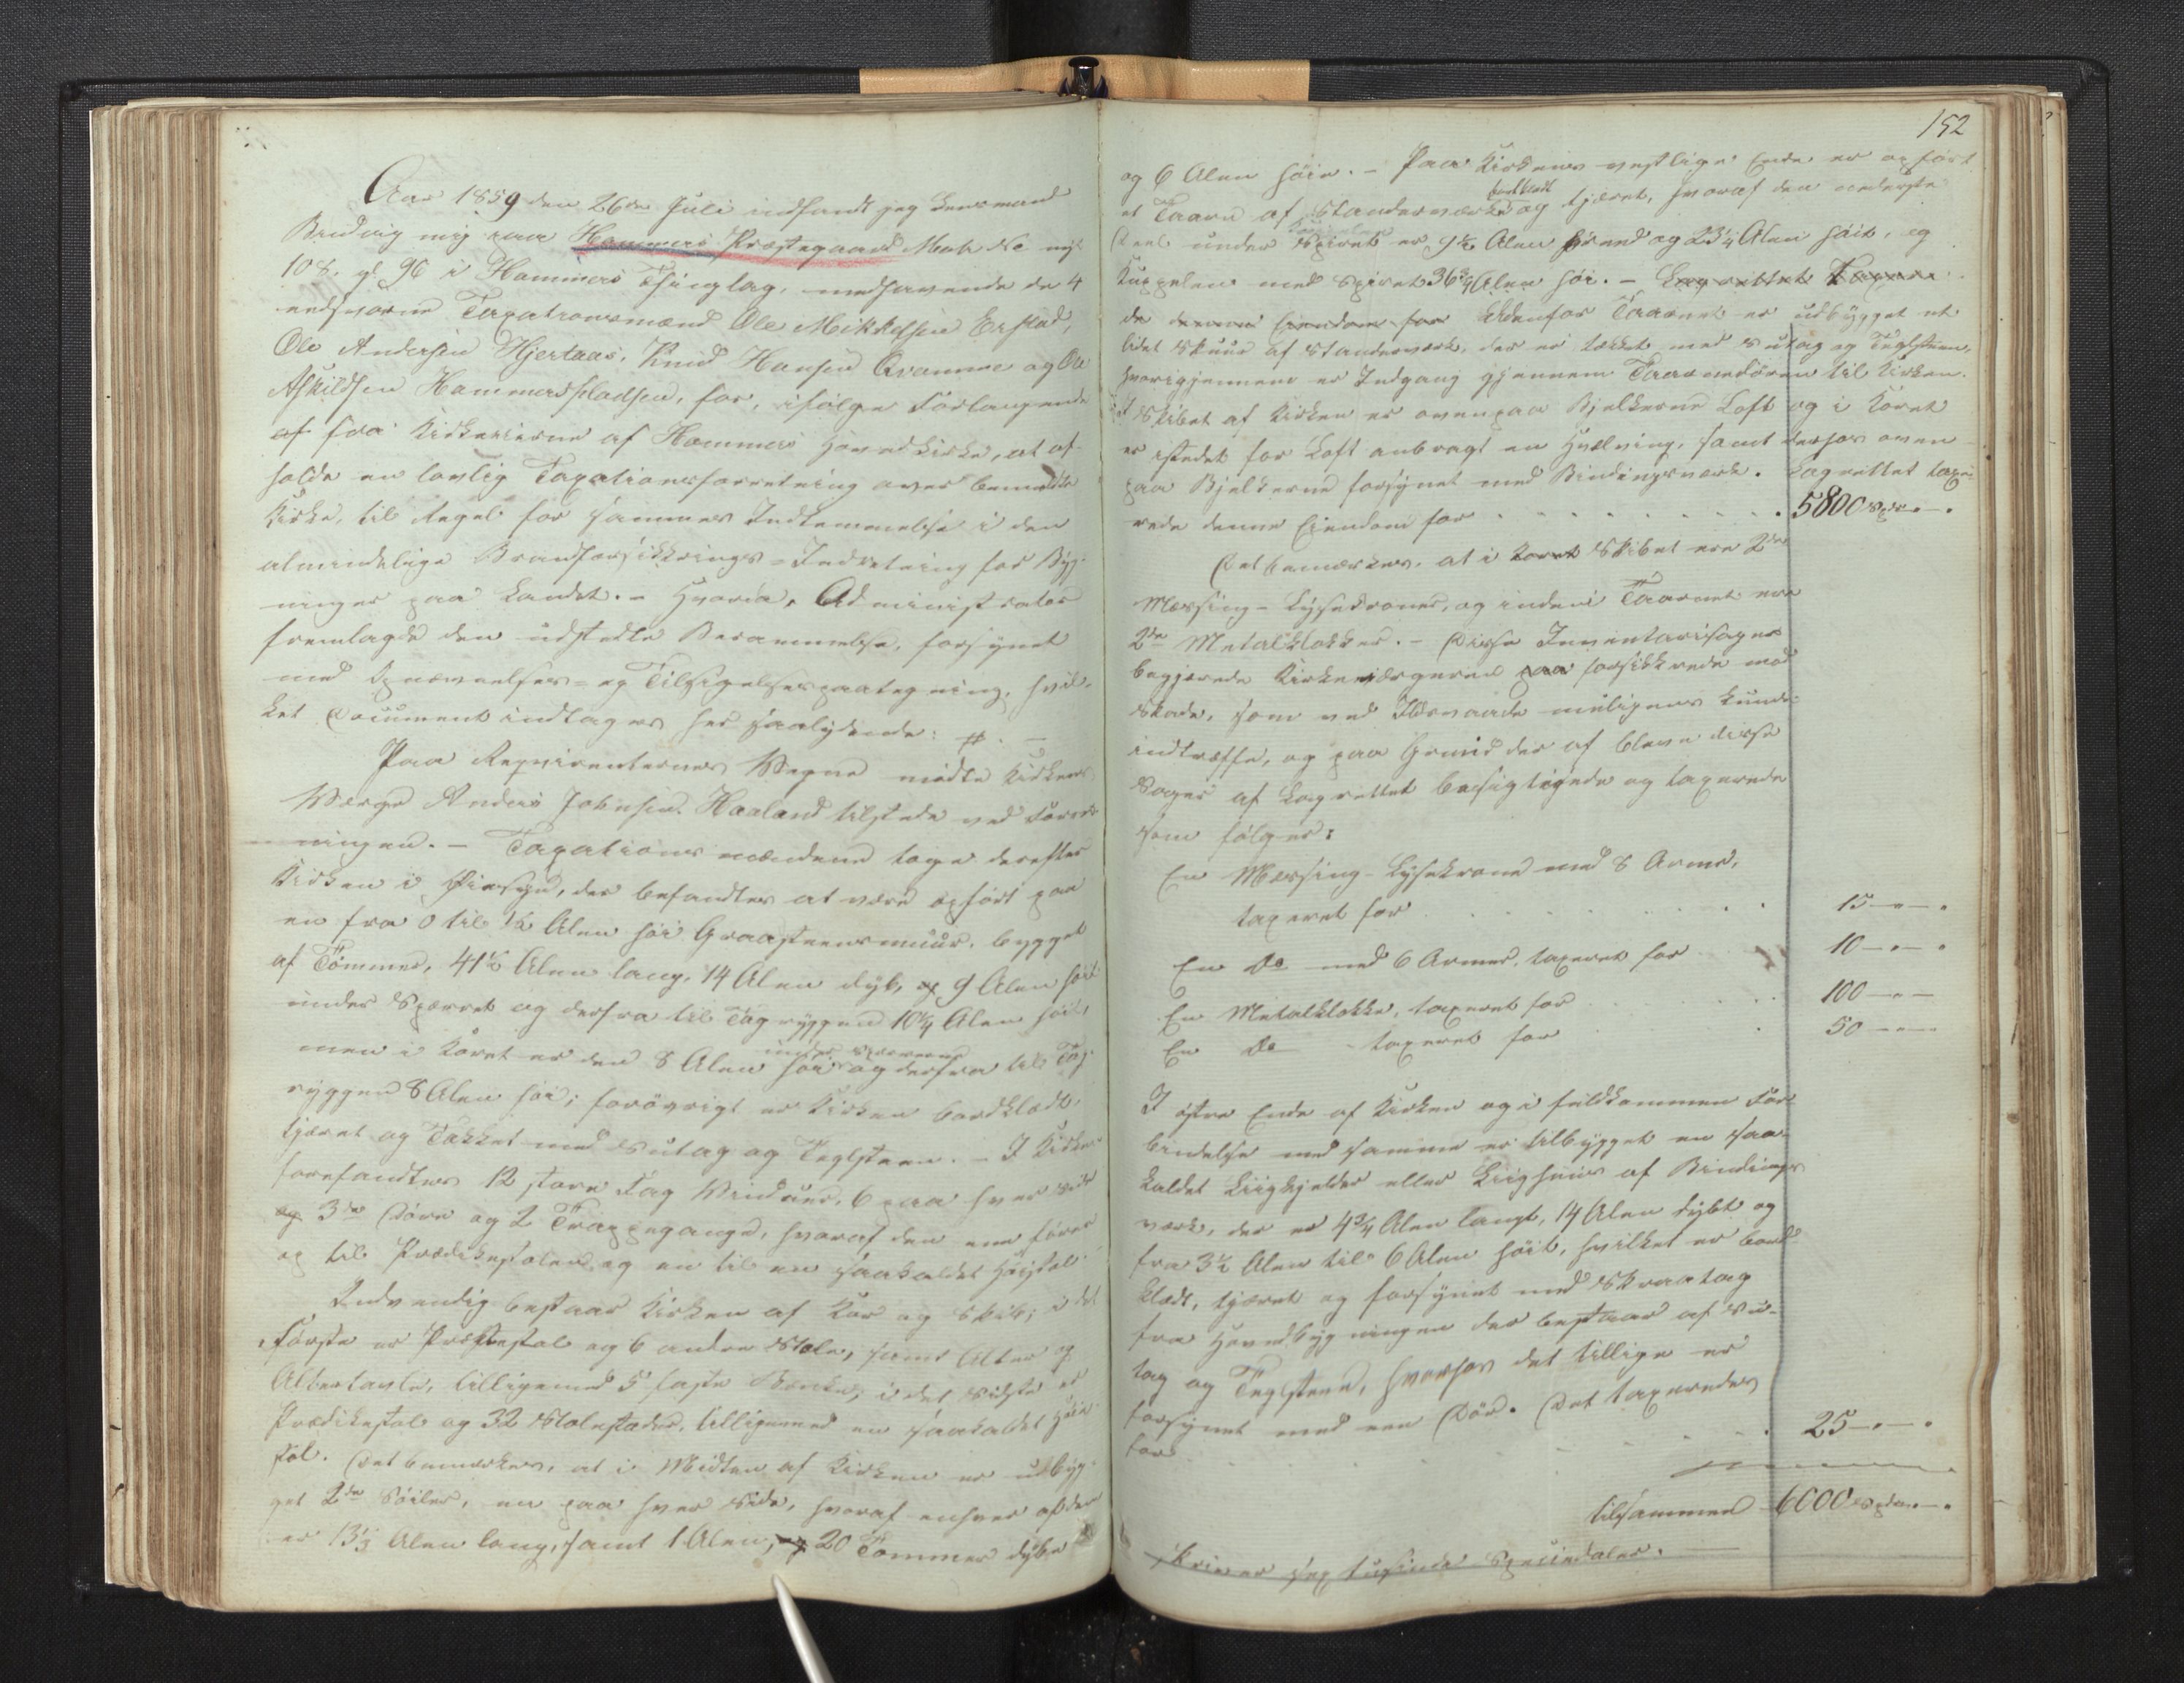 Aar 1859 den 26de Juli indfandt jeg Lensmand
Brudvig mig paa Hammers Præstegaard Matr No nyt
108. gl. 96 i Hammers Thinglag, medhavende de 4
eedsvorne Taxationsmænd Ole Mikkelsen Erstad,
Ole Andersen Hjertaas, Knud Hansen Qvamme og Ole
Askildsen Hammerspladsen, for, ifølge Forlangende
af fra Kirkeeierne af Hammers Hovedkirke, at af-
holde en lovlig Taxationsforretning over bemeldte
Kirke, til Regel for sammes Indlemmelse i den
almindelige Brandforsikkrings-Indretning for Byg-
ninger paa Landet. - Hvorda, Administrator
fremlagde den udstedte Berammelse, forsynet
med Opnævnelses- og Tilsigelsespaategning, hvil-
ket Document indtages her saalydende: #. -
Paa Reqvirenternes Vegne mødte Kirkens
Værge Anders Johnsen Haaland tilstede ved Forret-
ningen. - Taxationsmændene toge derefter
Kirken i Øiesyn, der befandtes at være opført paa
en fra 0 til 1½ Alen høi Graasteensmuur, bygget
af Tømmer, 41½ Alen lang, 14 Alen dyb, og 9 Alen høi
under Sperret og derfra til Tagryggen 10¼ Alen høit,
men i Koret er den 8 Alen høi under Sperrene og derfra til Tag-
ryggen 8 Alen høi; forøvrigt er Kirken bordklædt,
tjæret og Takket med Sutag og Teglsteen. - I Kirken
forefandtes 12 store Fag Vinduer, 6 paa hver Side
og 3de Døre og 2 Trappegange, hvoraf den ene fører
op til Prædikestolen og en til en saakaldet Høistol.
Indvendig bestaar Kirken af Kor og Skib; i det
Første er Præstestol og 6 andre Stole, samt Alter og
Altertavle, tilligemed 5 faste Bænke, i det Sidste er
Prædikestol og 32 Stolestader, tilligemed en saakaldet Høie-
stol. Det bemærkes, at i Midten af Kirken er udbyg-
get 2de Søiler, en paa hver Side, hvoraf enhver af dem
er 13⅓ Alen lang, samt 1 Alen, og 20 Tommer dybe
152
og 6 Alen høie. - Paa Kirkens vestlige Ende er opført
et Taarn af Standerværk bordklædt og tjæret, hvoraf den nederste
Deel under Spiret er 9½ Alen bred og 23¼ Alen høit, og
Kuppelen med Spiret 36¾ Alen høi. - Lagrettet Taxere-
de denne Eiendom for Udenfor Taarnet er udbygget et
lidet Skuur af Standerværk, der er takket med Sutag og Teglsteen,
hvorigjennem er Indgang gjennem Taarndøren til Kirken.
I Skibet af Kirken er ovenpaa Bjelkerne Loft og i Koret
er istedet for Loft anbragt en Hvælving, samt derhos oven-
paa Bjelkerne forsynet med Bindingsværk. Lagrettet taxe-
rede denne Eiendom for 5800 Spdr. - .
Det bemærkes, at i Koret Skibet ere 2de
Messing-Lysekroner, og inden i Taarnet ere
2de Metalklokker. - Disse Inventariesager
begjærede Kirkeværgeren paa forsikkrede mod
Skade, som ved Ildsvaade muligens kunde
indtræffe, og paa Grund der af bleve disse
Sager af Lagrettet besigtigede og taxerede
som følger:
En Messing-Lysekrone med 8 Arme,
taxeret for 15 - " - "
En Do med 6 Armer, taxeret for 10 - " - "
En Metalklokke, taxeret for 100 - " -
En Do taxeret for 50 - " -
I østre Ende af Kirken og i fuldkommen For-
bindelse med samme er tilbygget en saa-
kaldet Liigkjelder eller Liighuus af Bindings-
værk, der er 4¾ Alen langt, 14 Alen dybt og
fra 3½ Alen til 6 Alen høit, hvilket er bord-
klædt, tjæret og forsynet med Skraatag
fra Hovedbygningen der bestaar af Su-
tag og Teglsteen, hvorhos det tillige er
forsynet med een Dør. Det taxeredes
for 25 - " - "
tilsammen 6000 Spdr. - .
skriver sex tusinde Speciedaler.